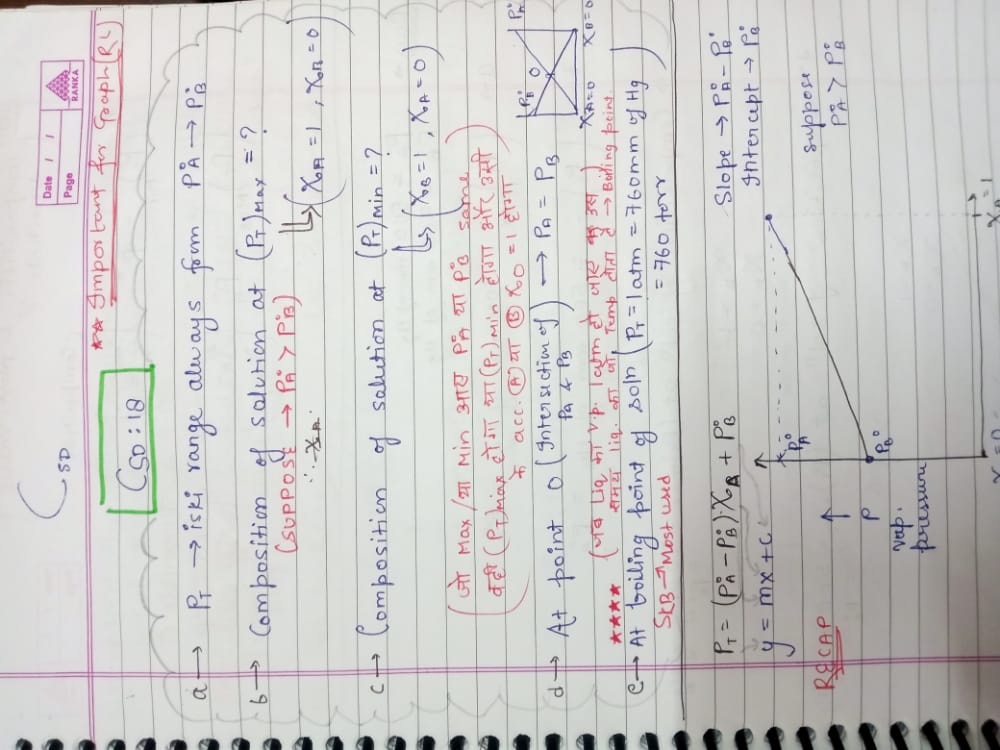 CSD
Date / /
Page
RANKA
CSD:18
★★ Important for Graph (RL)
a → PT → iski range always from P°A → P°B
b → Composition of solution at (PT)max = ?
(SUPPOSE → P°A > P°B)
↳ (XA = 1, XB = 0)
c → Composition of solution at (PT)min = ?
↳ (XB = 1, XA = 0)
(जो Max/या Min आय P°A या P°B same
वही (PT)max होगा या (PT)min होगा और उसी
के acc. Ⓐ या Ⓑ = 1 होगा)
d → At point O (Intersection of PA & PB) → PA = PB
P°B
O
P°A
XA=0
XB=0
★★★★ (जब Liq का v.p. 1atm हो जाए उस
समय liq. का जो Temp होता है → Boiling point)
e → At boiling point of soln (PT = 1atm = 760mm of Hg
= 760 torr)
SKB → Most used
PT = (P°A - P°B) XA + P°B
y = mx + c
Slope → P°A - P°B
Intercept → P°B
RECAP
suppose
P°A > P°B
P°A
P°B
↑
P
vap.
pressure
XA = 1